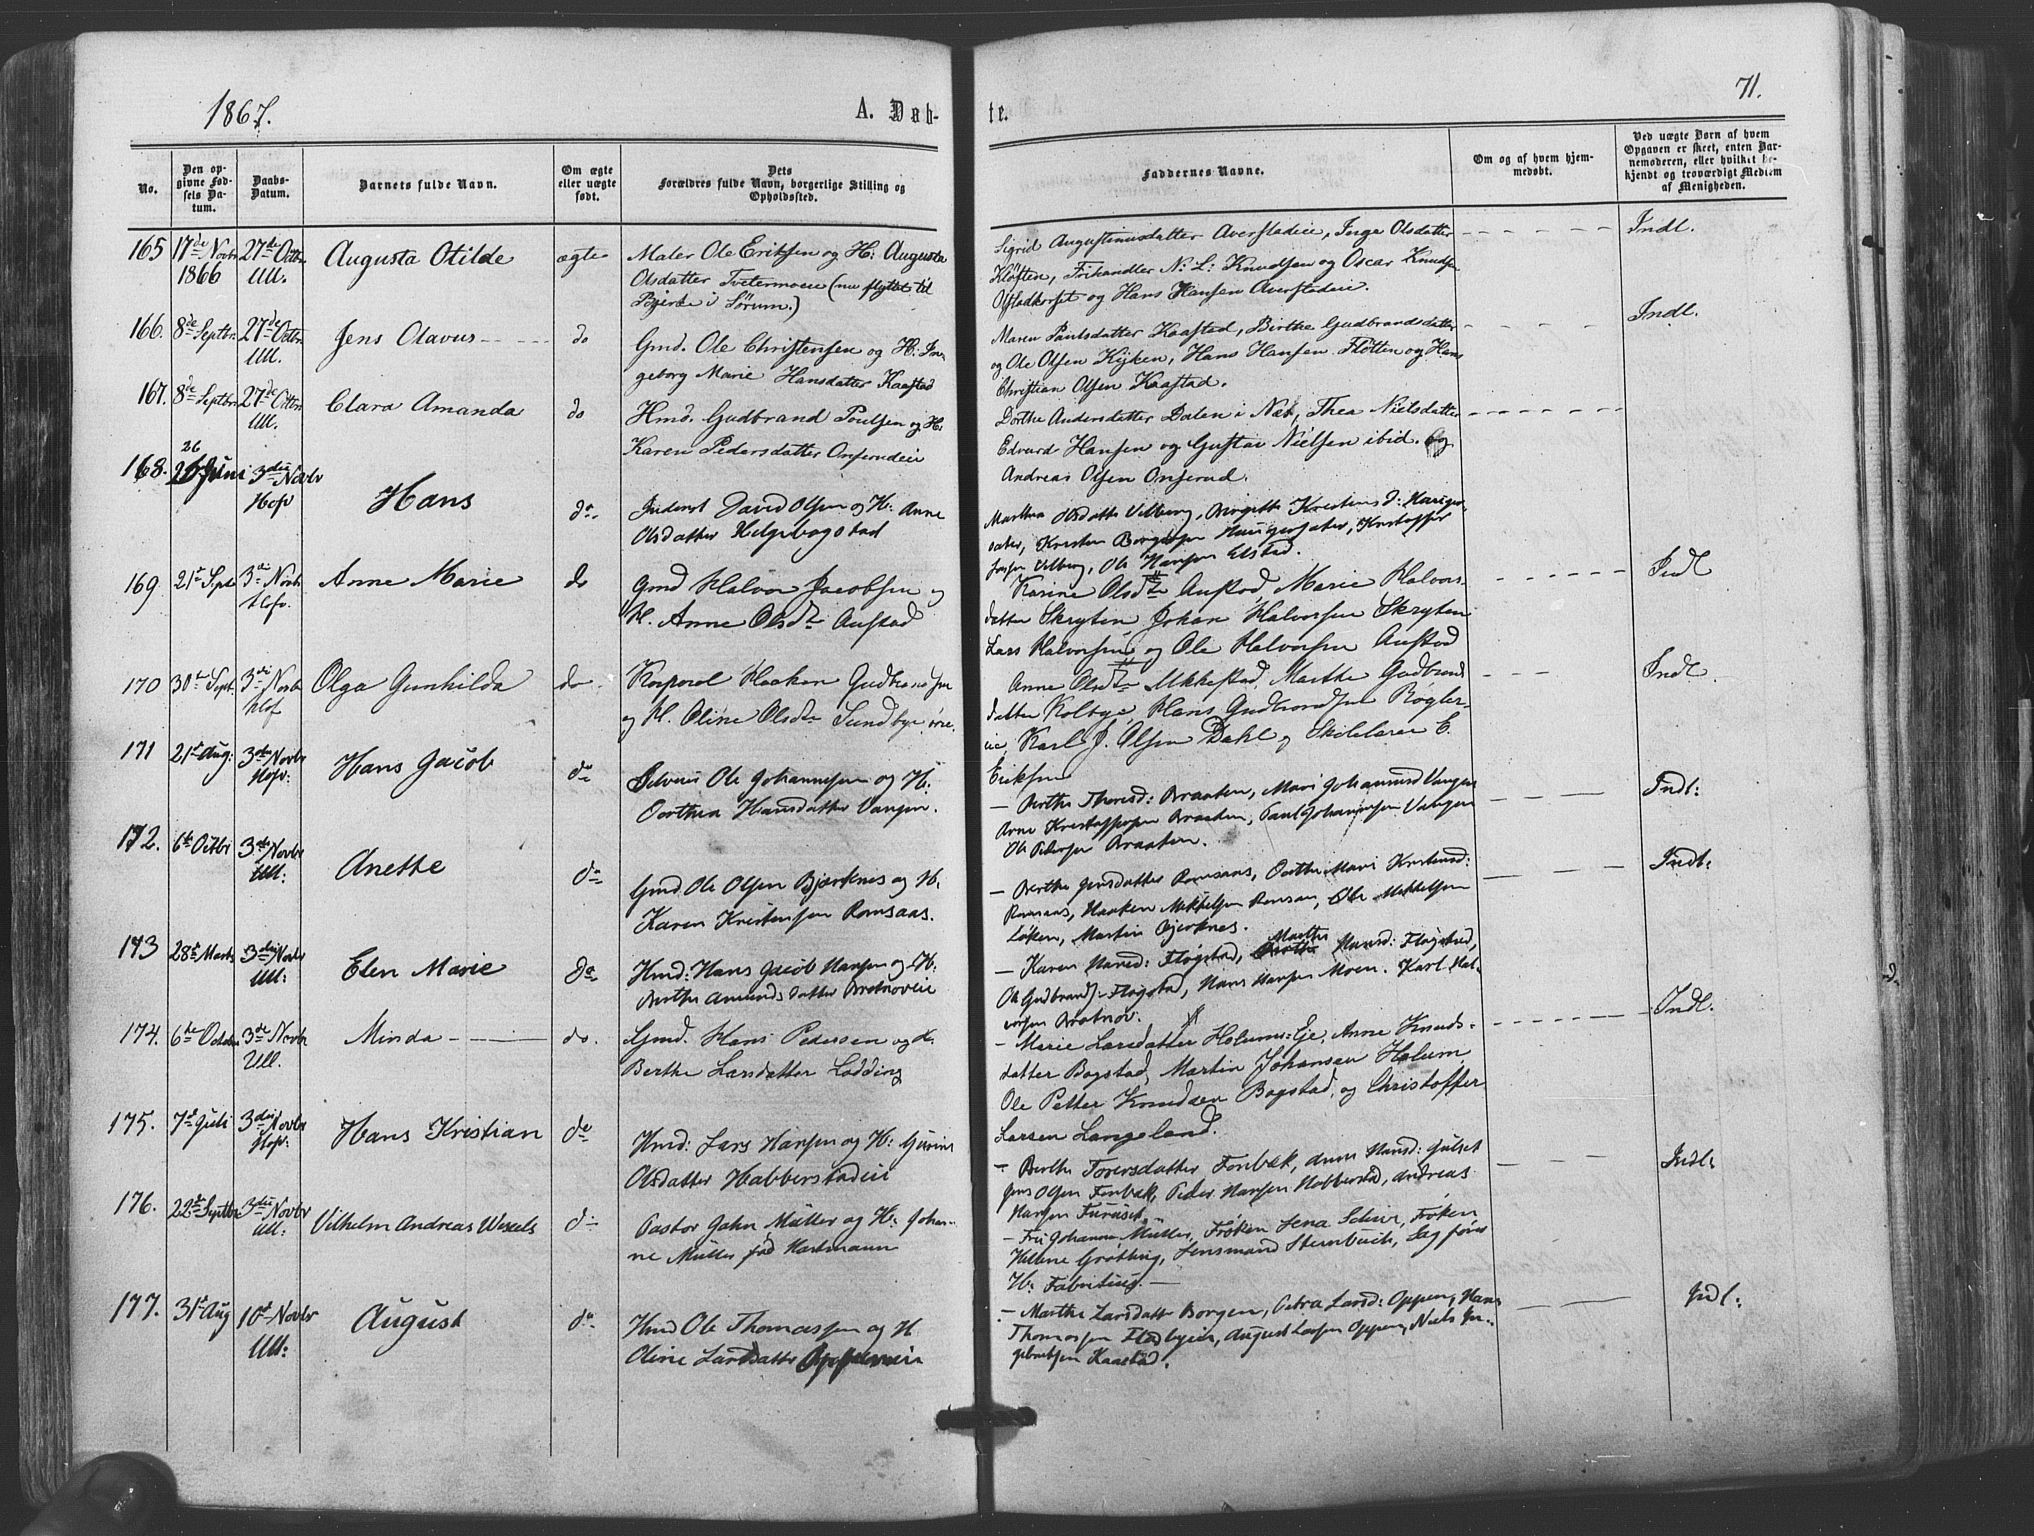 1867.
A. Døb-
te.
71.
No.
Den op-
givne Fød-
sels Da-
tum.
Daabs-
Datum.
Barnets fulde Navn.
Om ægte
eller uægte
født.
Dets
Forældres fulde Navn, borgerlige Stilling og
Opholdssted.
Faddernes Navne.
Om og af hvem hjem-
medøbt.
Ved uægte Børn af hvem
Opgaven er skeet, enten Bar-
nemoderen, eller hvilket be-
kjendt og troværdigt Medlem
af Menigheden.
165 17de Novbr 27de Octbr Augusta Otilde ægte Maler Ole Eriksen og H: Augusta
1866 Ull. Olsdatter Tvetermoeie (nu flyttet til
Bjerke i Sørum.)
Sigrid Augustinusdatter Averstadeie, Inga Olsdatter
Kløften, Frihandler N: L: Knudsen og Oscar Knudsen
Olstadkorset og Hans Hansen Averstadeie.
Indl.
166. 8de Septbr. 27de Octbr. Jens Olavus do Gmd. Ole Christensen og H: In-
Ull. geborg Marie Hansdatter Kaastad
Maren Paulsdatter Kaastad, Birthe Gudbrandsdatter
og Ole Olsen Kijken, Hans Hansen Fløtten og Hans
Christian Olsen Kaastad.
Indl.
167. 8de Septbr. 27de Octbr. Clara Amanda do Hmd. Gudbrand Poulsen og H:
Ull. Karen Pedersdatter Onsrudeie
Dorthe Andersdatter Dalen i Næs, Thea Nielsdatter
Edvard Hansen og Gustav Nielsen ibid. og
Andreas Olsen Onsrud.
26
168. Juni 3die Novbr Hans do Inderst David Olsen og H: Anne
Hofv Olsdatter Helgebogstad
Marthea Olsdatter Vilberg, Birgitte Kristensd: Hauger-
sæter, Kristen Haugersæter, Kristoffer
Vilberg, Ole Hansen Elstad.
169 21de Sept. 3die Novb. Anne Marie do Gmd Halvor Jacobsen og
Hofv. H. Anne Olsdtr Austad
Karine Olsdtr Austad, Marie Halvors-
datter Skryten Johan Halvorsen Skryten
Lars Halvorsen og Ole Halvorsen Austad
Indl
170 30te Sept. 3die Novb. Olga Gunhilda do Korporal Haaken Gudbrandsen
Hof og H. Oline Olsdtr Sundbye øvre.
Anne Olsdtr Mikkestad, Marthe Gudbrands
datter Kolbye, Hans Gudbrandsen Rogler-
eie, Karl J. Olsen Dahl og Skolelærer E.
Eriksen
Indl.
171 21de Aug: 3die Novbr Hans Jacob do Ole Johannesen og H:
Hofv: Dorthea Hansdatter Vangen.
– Berthe Thoresd: Braaten, Mari Johannesd Vangen
Arne Kristoffersen Braaten, Paul Johannesen Vangen
Ole Pedersen Braaten.
Indl:
172. 6te Octbr 3die Novbr Anette do Gmd. Ole Olsen Bjærknes og H.
Ull: Karen Kristensen Romsaas.
– Berthe Jensdatter Romsaas, Dorthe Mari Kristensd:
Romsaas, Haaken Mikkelsen Romsaas, Ole Mikkelsen
Løken, Martin Bjerknes.
Indl:
173 28de Marts 3die Novbr Elen Marie do Hmd: Hans Jacob Hansen og H:
Ull: Berthe Amundsdatter Brotnoveie
– Karen Hansd: Fløgstad, Marthe Hansd: Fløgstad,
Ole Gudbrands: Fløgstad, Hans Hansen Moen. Karl Hal-
vorsen Brotnov.
174. 6te October 3de Novbr Minda do. Gmd. Hans Pedersen og H.
Ull. Berthe Larsdatter Lodding
– Marie Larsdatter Holums: Eje, Anne Knuds-
datter Bogstad, Martin Johansen Holum,
Ole Petter Knudsen Bogstad, og Christoffer
Larsen Langeland.
Indl.
175. 7de Juli 3die Novbr Hans Kristian do Hmd: Lars Hansen og H:
Hofv: Olsdatter Habberstadeie
– Berthe Torersdatter Fonbæk, Anne Hansd: Gulset
Jens Olsen Fonbæk, Peder Hansen Habberstad, Andreas
Hansen Furuset.
Indl:
176. 22de Septbr 3die Novbr Vilhelm Andreas Wexels do Pastor Jahn Müller og H: Johan-
Ull: ne Müller fød Hartmann
– Fru Johanne Müller, Frøken Jena Scheer, Frøken
Helene Grøtting, Lensmand Stenbuch, Sagfører
H: Fabritius. –
177. 31te Aug 10de Novbr August do Hmd Ole Thomassen og H
Ull: Oline Larsdatter Oppeneie
– Marthe Larsdatter Borgen, Petra Larsd: Oppen, Hans
Thomassen, August Larsen Oppen, Niels In-
gebretsen Kaastad.
Indl: